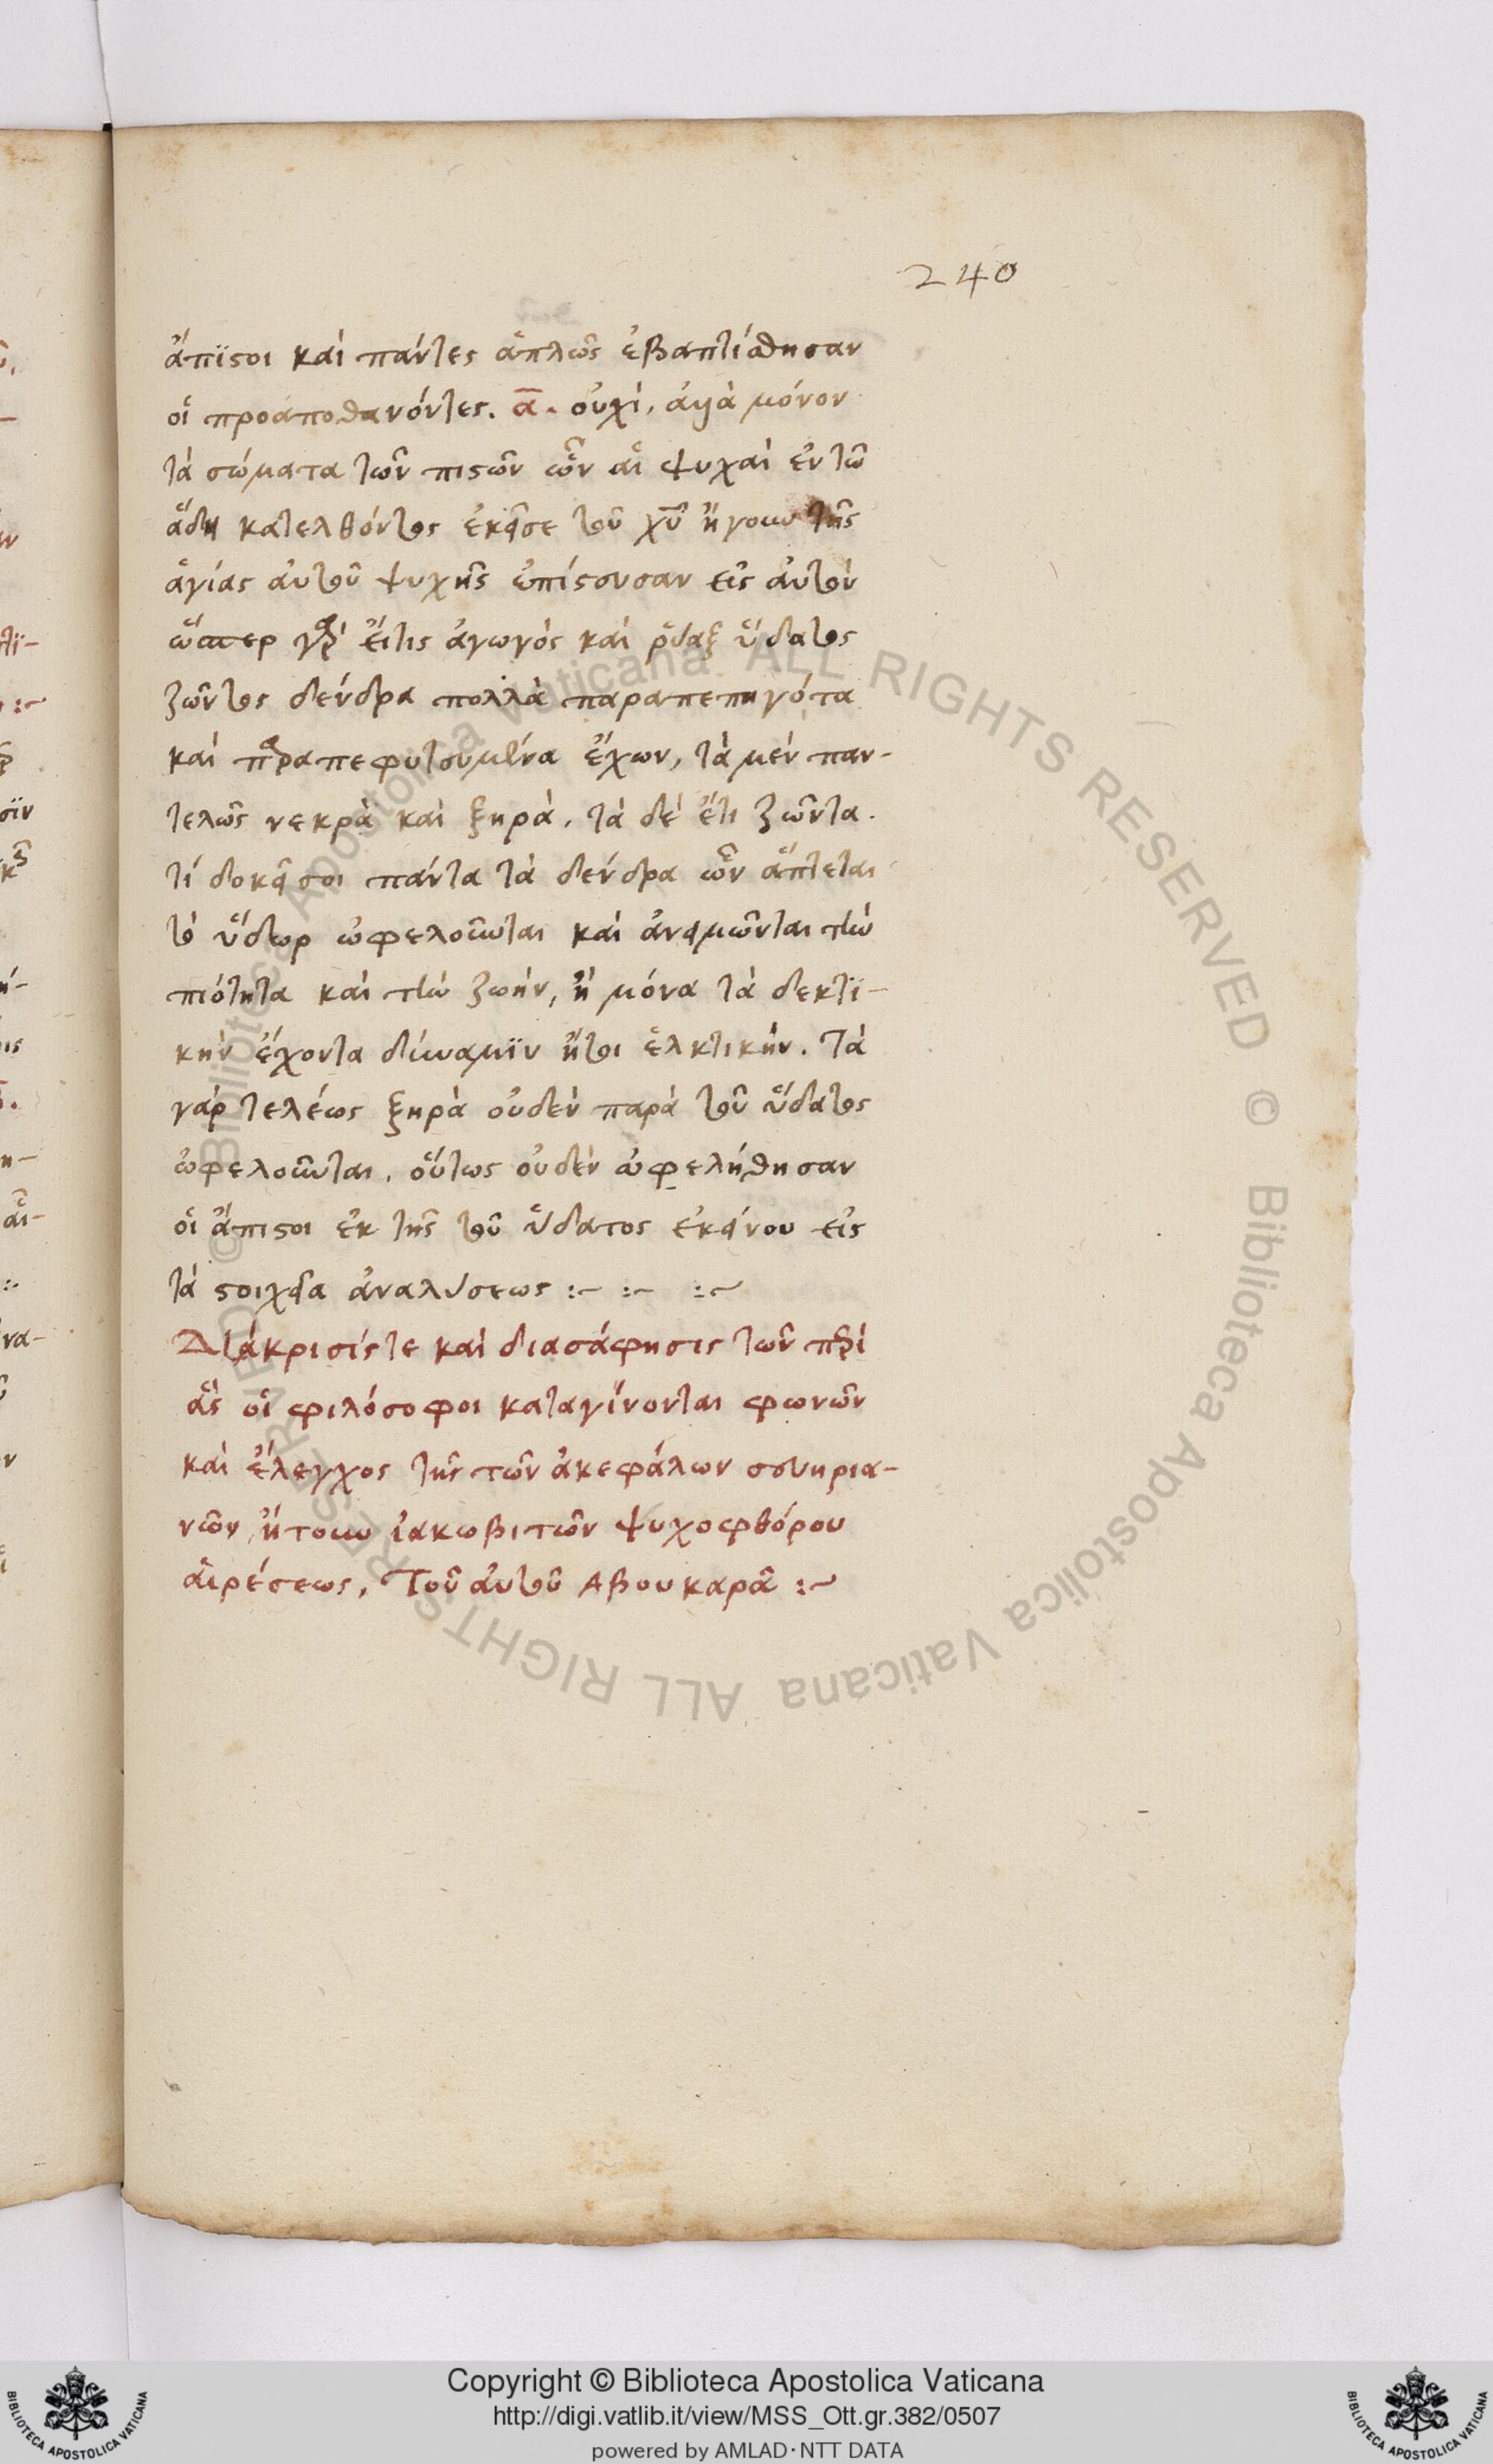 240
ἄπϊστοι καὶ πάντες ἁπλῶς ἐβαπτίσθησαν
οἱ προαποθανόντες. α. οὐχὶ, ἀλλὰ μόνον
τὰ σώματα τῶν πιστῶν ὧν αἱ ψυχαὶ ἐν τῶ
ἅδη κατελθόντος ἐκεῖσε τοῦ χυ ἤγουν τῆς
ἁγίας αὐτοῦ ψυχῆς ἐπίστευσαν εἰς αὐτὸν
ὥσπερ γὰρ εἴτις ἀγωγὸς καὶ ῥύαξ ὕδατος
ζῶντος δένδρα πολλὰ παραπεπηγότα
καὶ παραπεφυτευμένα ἔχων, τὰ μὲν παν-
τελῶς νεκρὰ καὶ ξηρὰ, τὰ δὲ ἔτι ζῶντα.
τί δοκεῖ σοι πάντα τὰ δένδρα ὧν ἅπτεται
τὸ ὕδωρ ὠφελοῦνται καὶ ἀνιμῶνται τὴν
πιότητα καὶ τὴν ζωὴν, ἢ μόνα τὰ δεκτϊ-
κὴν ἔχοντα δύναμϊν ἤτοι ἑλκτικὴν. Τὰ
γὰρ τελέως ξηρὰ οὐδὲν παρὰ τοῦ ὕδατος
ὠφελοῦνται, οὕτως οὐδὲν ὠφελήθησαν
οἱ ἄπιστοι ἐκ τῆς τοῦ ὕδατος ἐκείνου εἰς
τὰ στοιχεῖα ἀναλύσεως :~ :~ :~
Διάκρισίς τε καὶ διασάφησις τῶν περὶ
ἃς οἱ φιλόσοφοι καταγίνονται φωνῶν
καὶ ἔλεγχος τῆς τῶν ἀκεφάλων σευηρια-
νῶν, ἤτουν ἰακωβιτῶν ψυχοφθόρου
αἱρέσεως, Τοῦ αὐτοῦ Αβουκαρᾶ :~
Copyright © Biblioteca Apostolica Vaticana
http://digi.vatlib.it/view/MSS_Ott.gr.382/0507
powered by AMLAD·NTT DATA
© Biblioteca Apostolica Vaticana ALL RIGHTS RESERVED © Biblioteca Apostolica Vaticana ALL RIGHTS RESERVED
BIBLIOTECA APOSTOLICA VATICANA
BIBLIOTECA APOSTOLICA VATICANA